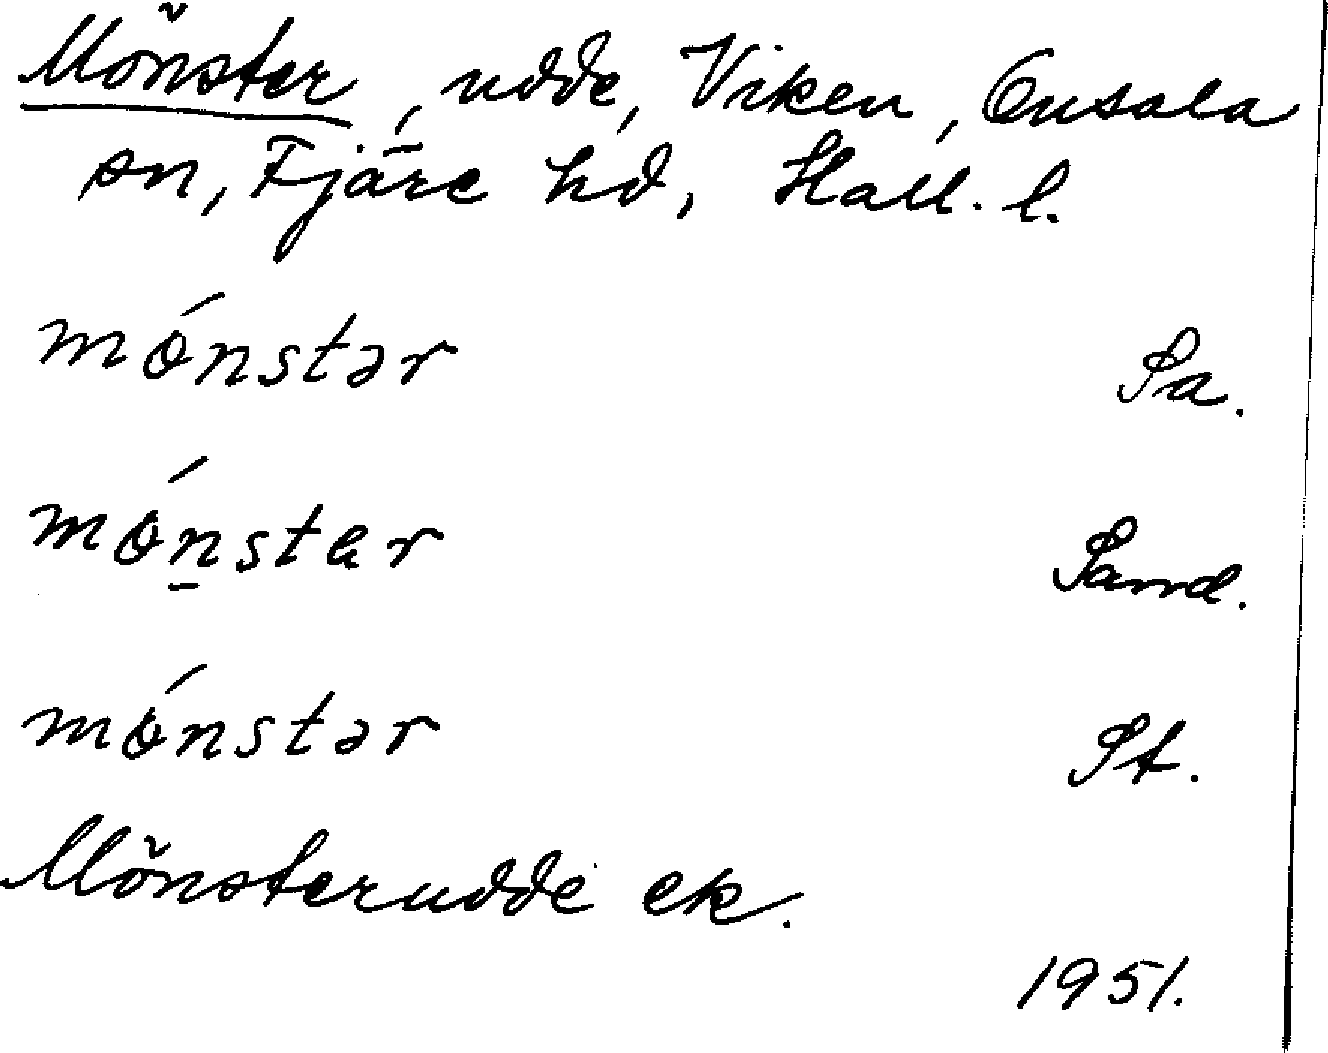 Mönster, udde, Viken, Onsala
sn, Fjäre hd, Hall. l.
mǿnstər Sa.
mǿn̲star Sand.
mǿnstər St.
Mönsterudde ek.
1951.